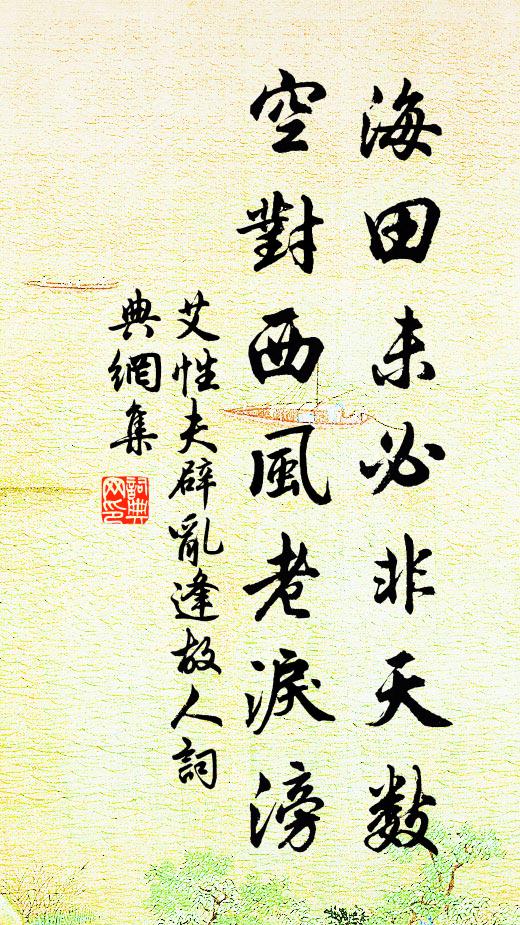 海田未必非天数
空對西風老淚滂
艾性夫辟亂逢故人詞
典網集
詞典网印